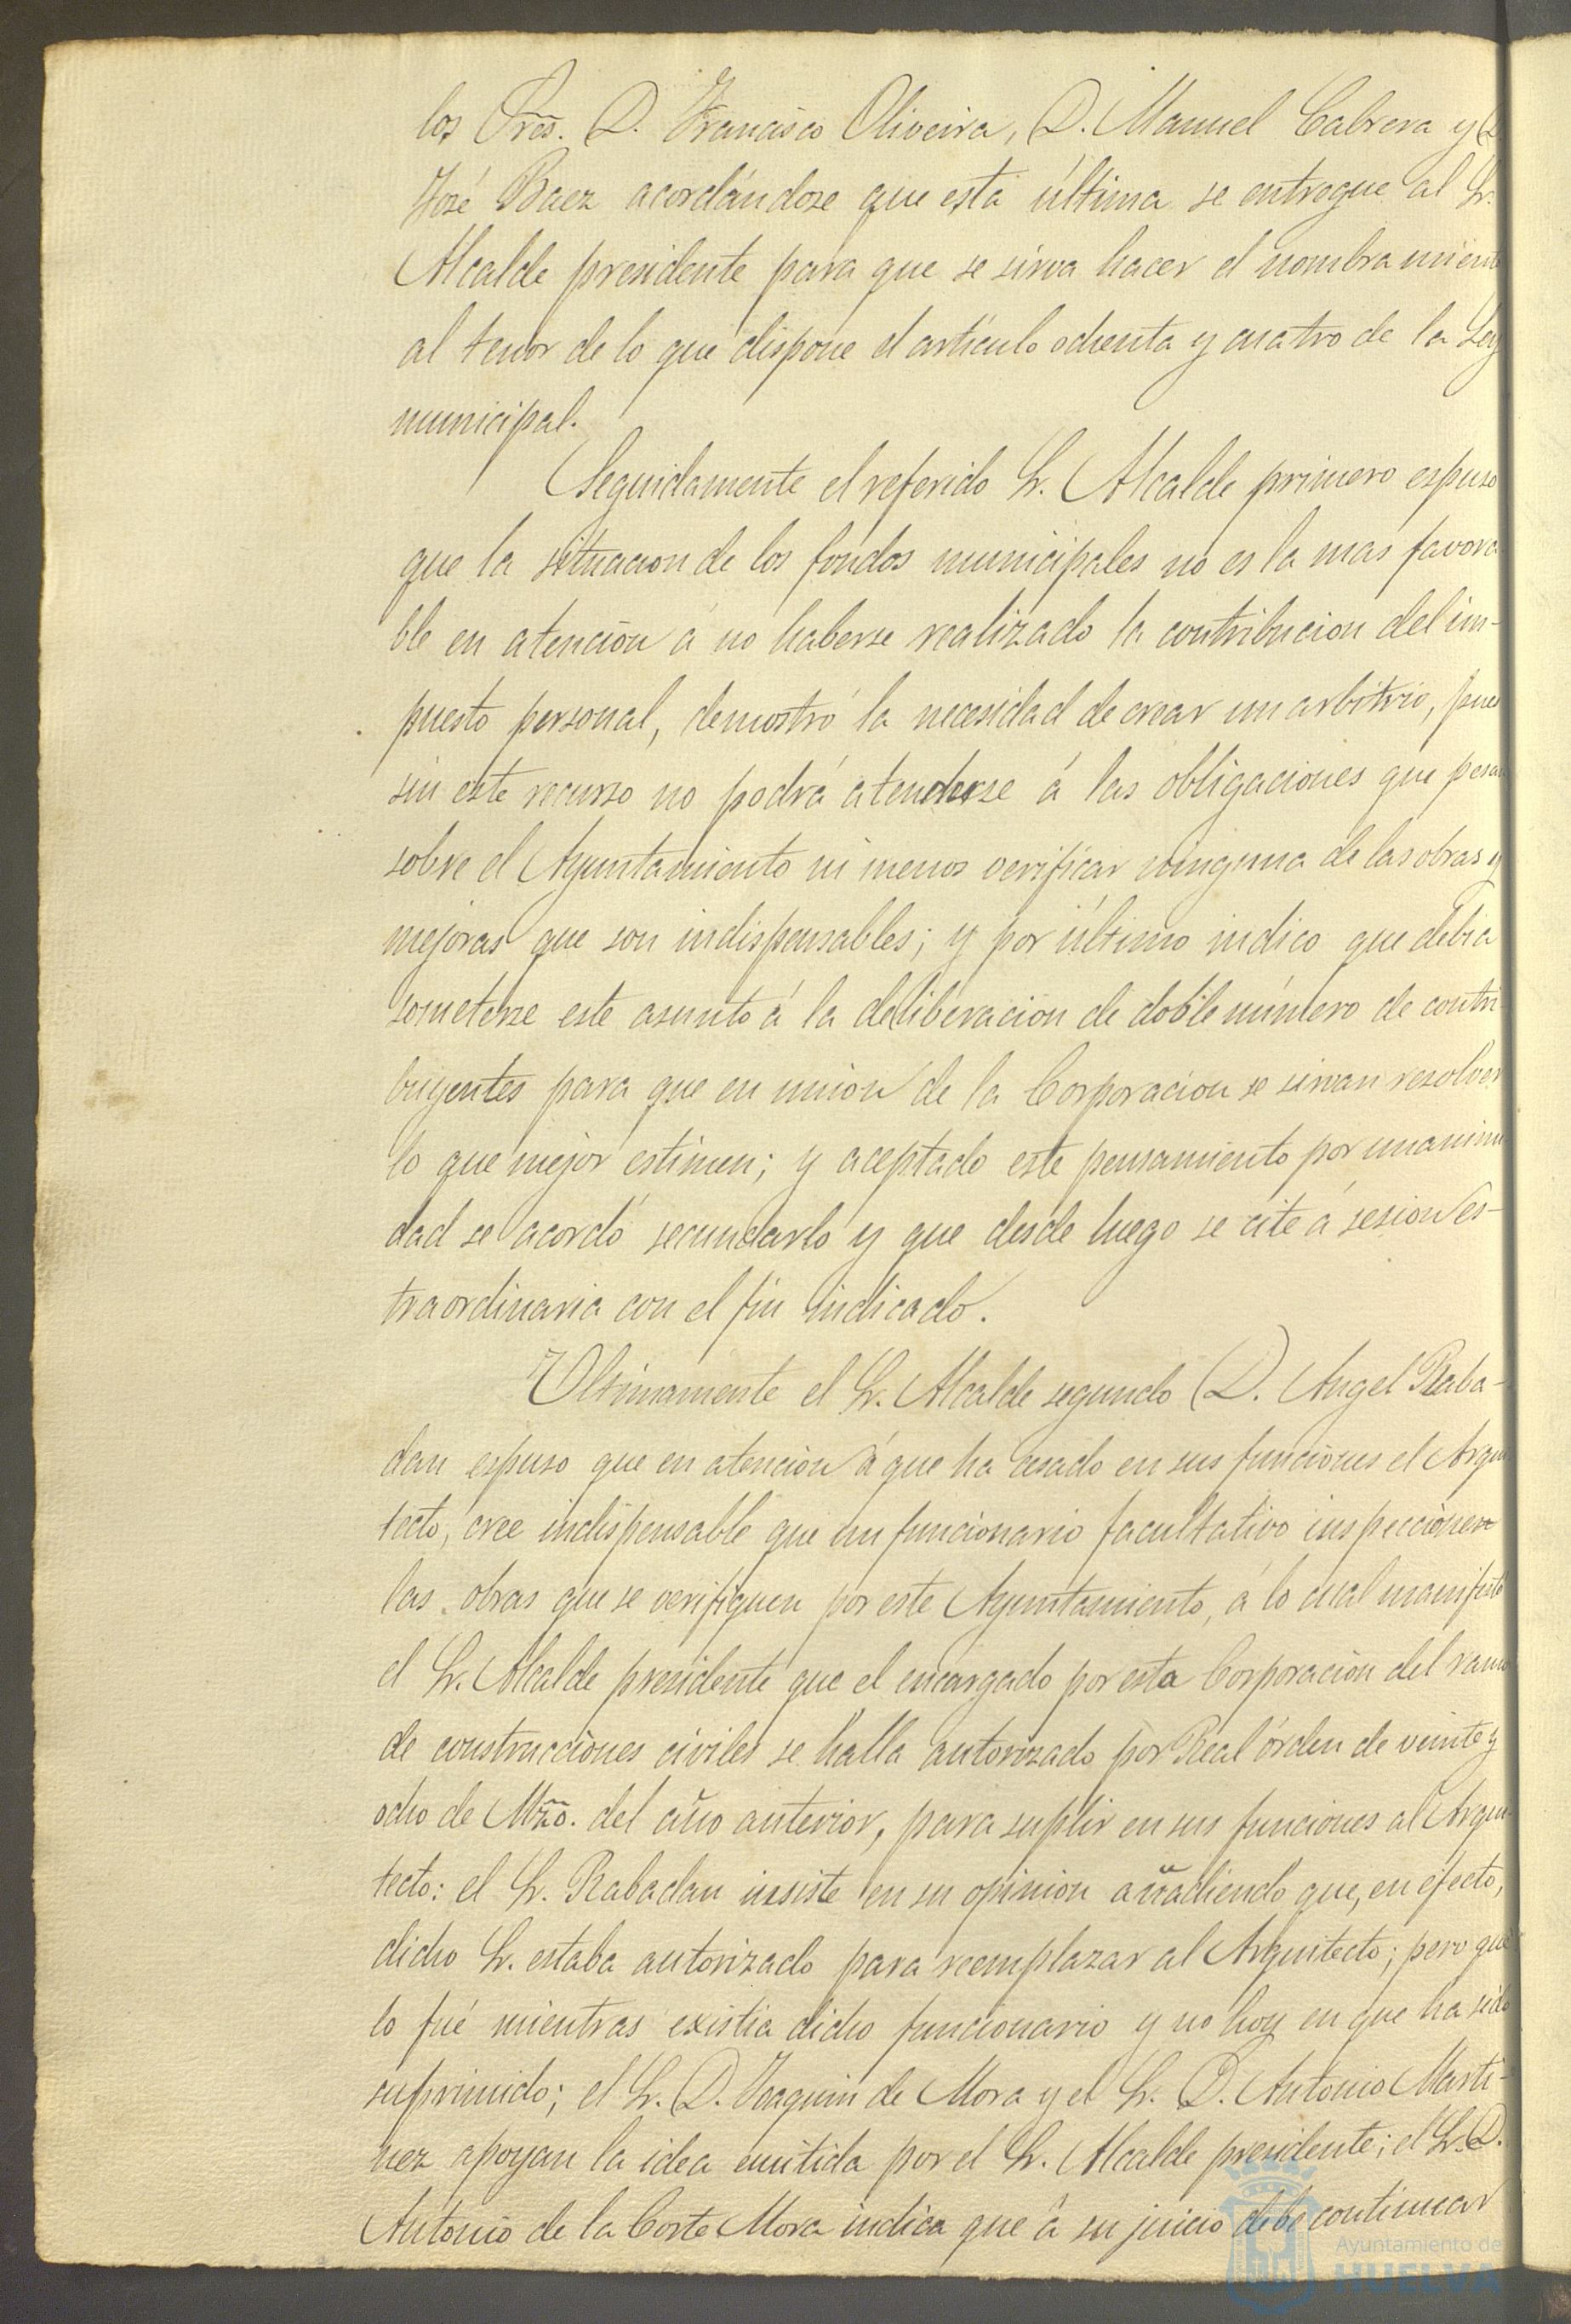 los Sres. D. Francisco Oliveira, D. Manuel Cabrera y D.
José Baez acordándose que esta última se entregue al Sr.
Alcalde presidente para que se sirva hacer el nombramiento
al tenor de lo que dispone el artículo ochenta y cuatro de la Ley
municipal.
Seguidamente el referido Sr. Alcalde primero espuso
que la situacion de los fondos municipales no es la mas favora
ble en atencion á no haberse realizado la contribucion del im-
puesto personal, demostró la necesidad de crear un arbitrio, pues
sin este recurso no podrá atenderse á las obligaciones que pesan
sobre el Ayuntamiento ni menos verificar ninguna de las obras y
mejoras que son indispensables; y por último indico que debia
someterse este asunto á la deliberacion de doble número de contri
buyentes para que en union de la Corporacion se sirvan resolver
lo que mejor estimen; y aceptado este pensamiento por unanimi
dad se acordó secundarlo y que desde luego se cite á sesion es-
traordinaria con el fin indicado.
Ultimamente el Sr. Alcalde segundo D. Angel Raba-
dan espuso que en atencion á que ha cesado en sus funciones el Arqui
tecto, cree indispensable que un funcionario facultativo inspeccione
las obras que se verifiquen por este Ayuntamiento, á lo cual manifestó
el Sr. Alcalde presidente que el encargado por esta Corporacion del ramo
de construcciones civiles se halla autorizado por Real órden de veinte y
ocho de Mzo. del año anterior, para suplir en sus funciones al Arqui
tecto: el Sr. Rabadan insiste en su opinion añadiendo que, en efecto,
dicho Sr. estaba autorizado para reemplazar al Arquitecto; pero que
lo fué mientras existia dicho funcionario y no hoy en que ha sido
suprimido; el Sr. D. Joaquin de Mora y el Sr. D. Antonio Marti-
nez apoyan la idea emitida por el Sr. Alcalde presidente; el Sr. D.
Antonio de la Corte Mora indica que á su juicio debe continuar
Ayuntamiento de
HUELVA